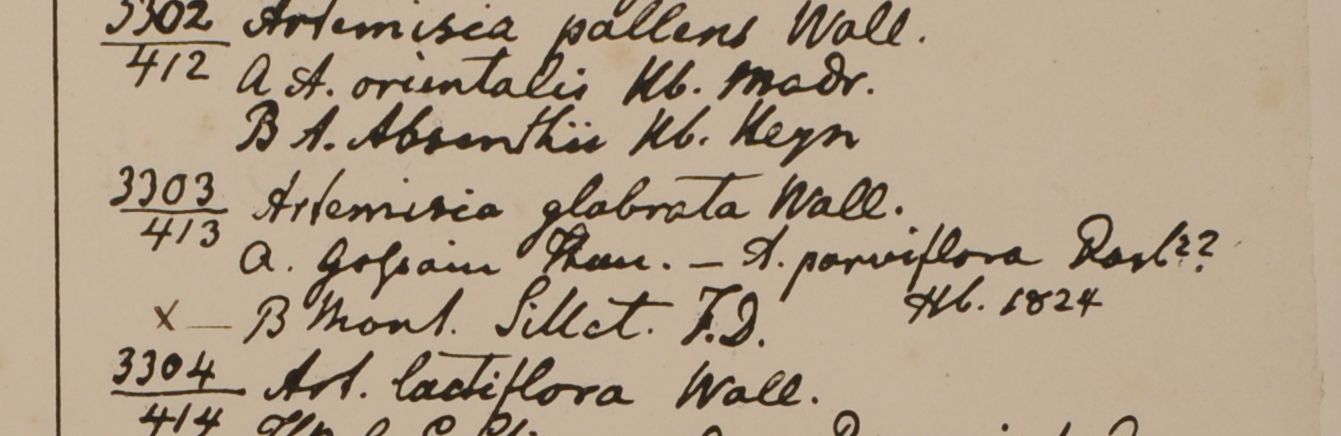 3302 Artemisia pallens Wall.
412 A A. orientalis Hb. Madr.
B A. Absinthii Hb. Heyn
3303 Artemisia glabrata Wall.
413
A. Gossain Than. – A. parviflora Roxb??
Hb. 1824
x — B Mont. Sillet. F.D.
3304 Art. lactiflora Wall.
414